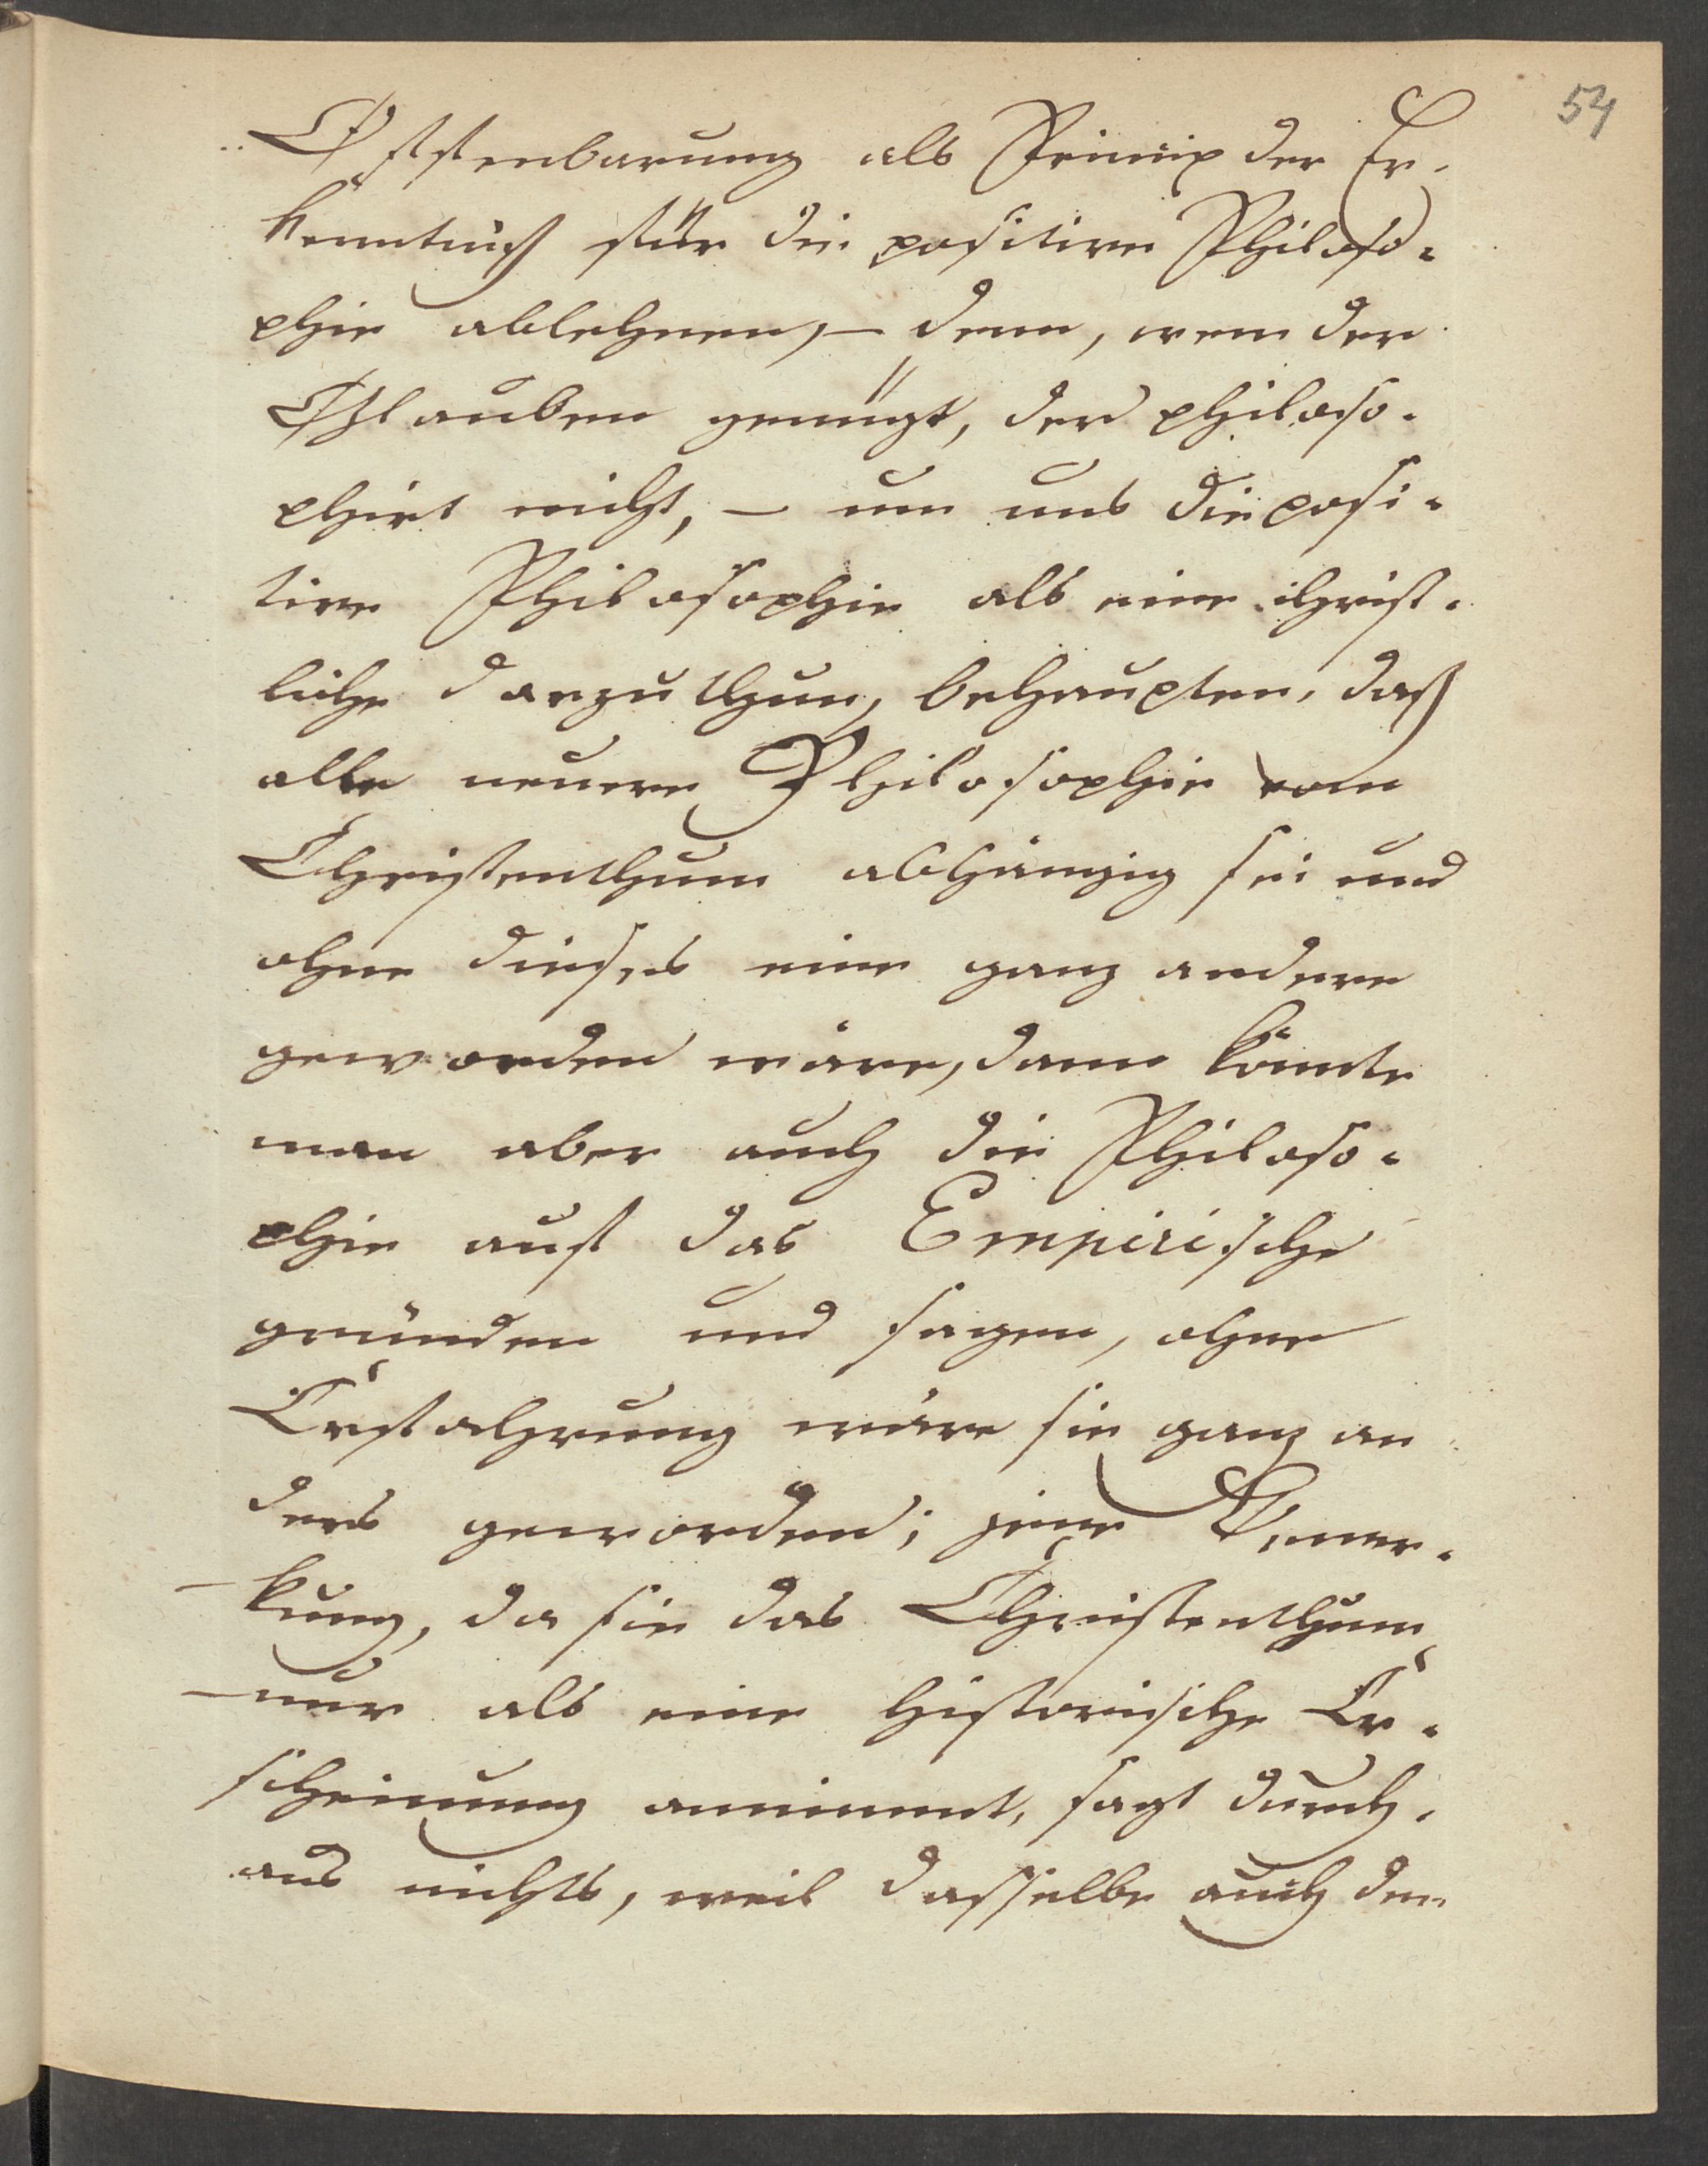 54
Offenbarung als Prinzip der Er-
kenntniß für die positive Philoso-
phie ablehnen, – denn, wem der
Glauben genügt, der philoso-
phirt nicht, – um uns die posi-
tive Philosophie als eine christ-
liche darzuthun, behaupten, daß
alle neuere Philosophie vom
Christenthum abhängig sei und
ohne dieses eine ganz andere
geworden wäre, dann könnte
man aber auch die Philoso-
phie auf das Empirische
gründen und sagen, ohne
Erfahrung wäre sie ganz an
ders geworden; jene Bemer-
kung, da sie das Christenthum
nur als eine historische Er-
scheinung annimmt, sagt durch-
aus nichts, weil dasselbe auch den